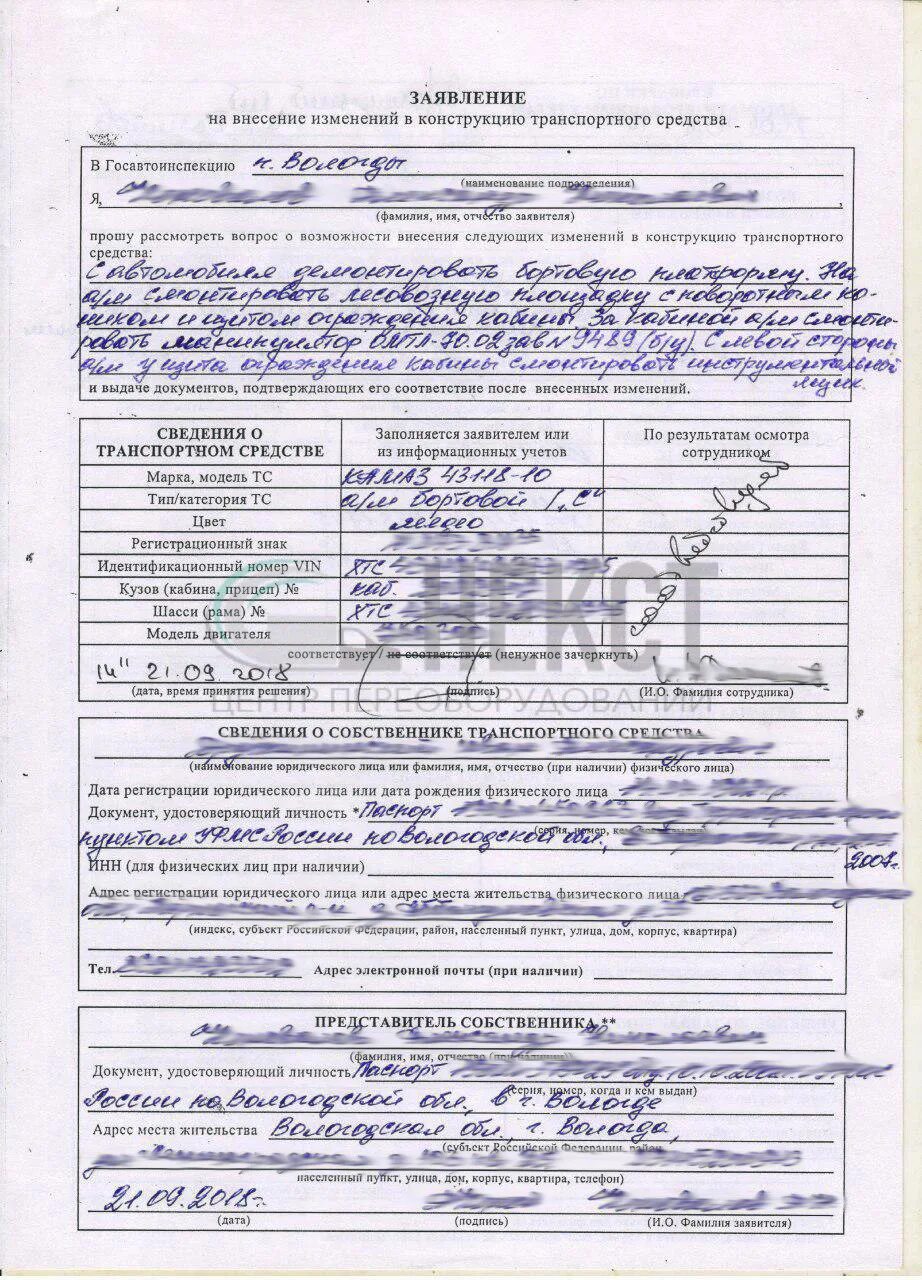 ЗАЯВЛЕНИЕ
на внесение изменений в конструкцию транспортного средства
В Госавтоинспекцию г. Вологды
(наименование подразделения)
Я,
(фамилия, имя, отчество заявителя)
прошу рассмотреть вопрос о возможности внесения следующих изменений в конструкцию транспортного
средства:
С автомобиля демонтировать бортовую платформу. На
а/м смонтировать лесовозную площадку с поворотным ко-
ником и щитом ограждения кабины. За кабиной а/м смонти-
ровать манипулятор ОМТЛ-70.02 зав № 9489 (б/у). С левой стороны
а/м у щита ограждения кабины смонтировать инструментальной
ящик.
и выдаче документов, подтверждающих его соответствие после внесенных изменений.
СВЕДЕНИЯ О
ТРАНСПОРТНОМ СРЕДСТВЕ
Заполняется заявителем или
из информационных учетов
По результатам осмотра
сотрудником
Марка, модель ТС КАМАЗ 43118-10
Тип/категория ТС а/м бортовой /"С"
Цвет
Регистрационный знак
Идентификационный номер VIN ХТС
Кузов (кабина, прицеп) № каб.
Шасси (рама) № ХТС
Модель двигателя
соответствует
соответствует / не соответствует (ненужное зачеркнуть)
14" 21.09.2018
(дата, время принятия решения) (подпись) (И.О. Фамилия сотрудника)
НГКСТ
ЦЕНТР ПЕРЕОБОРУДОВАНИЙ
СВЕДЕНИЯ О СОБСТВЕННИКЕ ТРАНСПОРТНОГО СРЕДСТВА
(наименование юридического лица или фамилия, имя, отчество (при наличии) физического лица)
Дата регистрации юридического лица или дата рождения физического лица
Документ, удостоверяющий личность *Паспорт
(серия, номер, кем
пунктом УФМС России по Вологодской обл.,
2007г.
ИНН (для физических лиц при наличии)
Адрес регистрации юридического лица или адрес места жительства физического лица
(индекс, субъект Российской Федерации, район, населенный пункт, улица, дом, корпус, квартира)
Тел. Адрес электронной почты (при наличии)
ПРЕДСТАВИТЕЛЬ СОБСТВЕННИКА **
(фамилия, имя, отчество (при наличии))
Документ, удостоверяющий личность Паспорт
(серия, номер, когда и кем выдан)
России по Вологодской обл., в г. Вологде
Адрес места жительства Вологодская обл., г. Вологда,
(субъект Российской Федерации, район
населенный пункт, улица, дом, корпус, квартира, телефон)
21.09.2018г.
(дата) (подпись) (И.О. Фамилия заявителя)